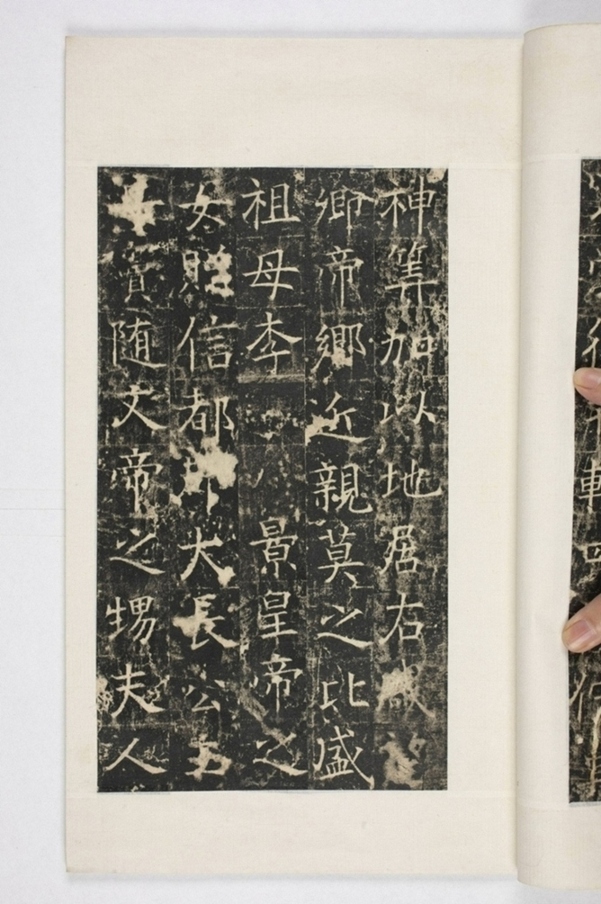 神筭加以地居右戚
卿帝鄉近親莫之比盛
祖母李景皇帝之
女則信都郡大長公主
實随文帝之甥夫人